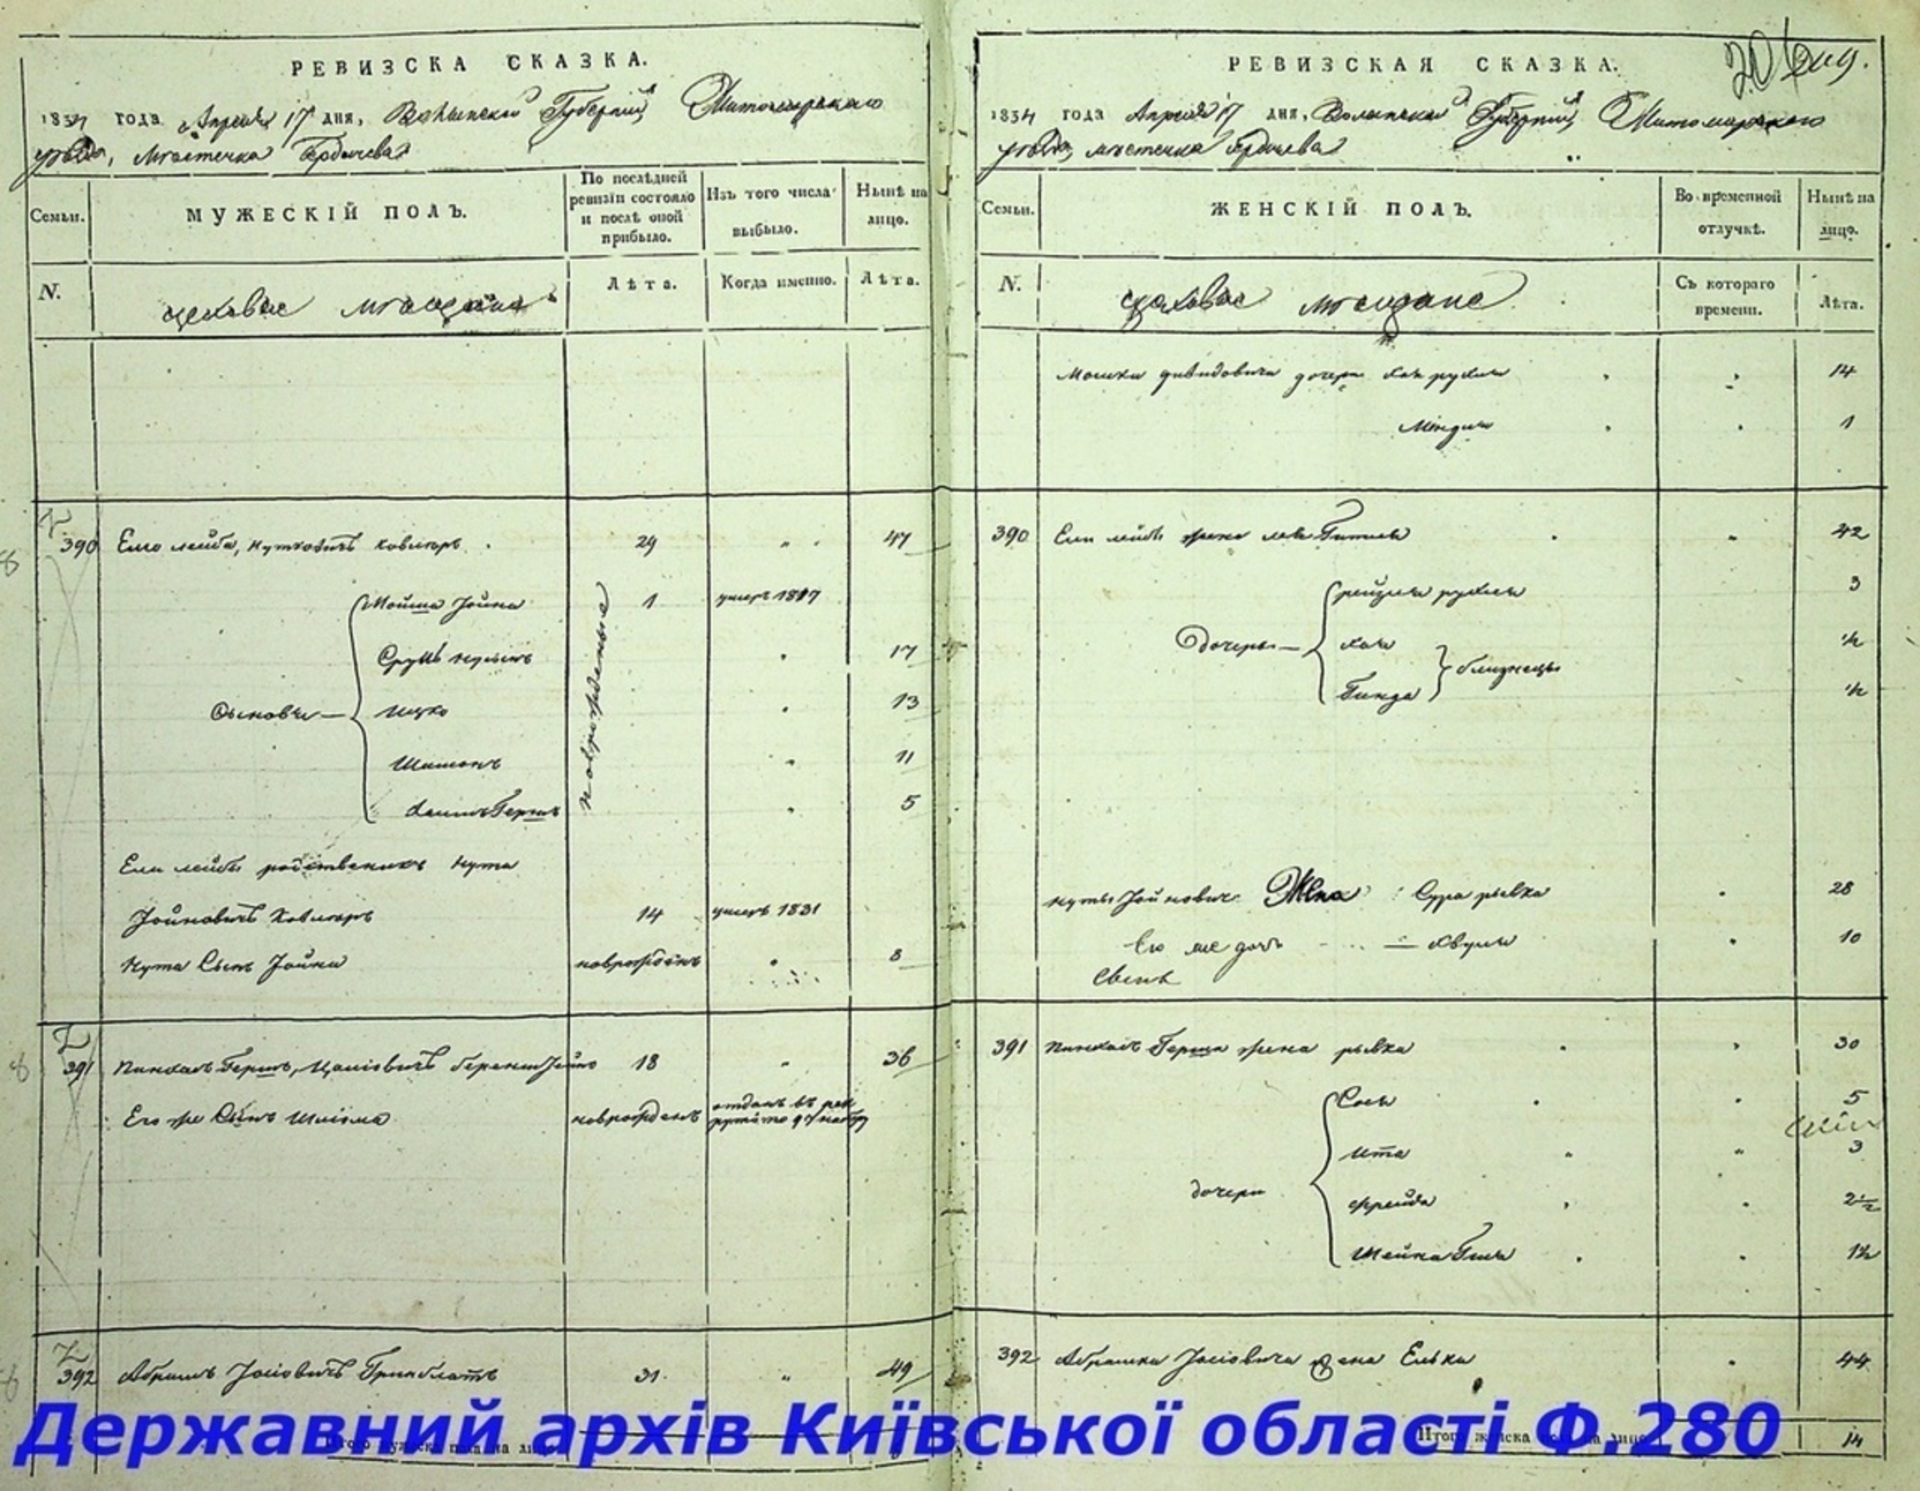 РЕВИЗСКА СКАЗКА.
1834 года Апреля 17 дня, Волынской Губернии Житомирского
уезда, Местечка Бердичева
Семьи.
МУЖЕСКІЙ ПОЛЪ.
По послѣдней ревизіи состояло и послѣ оной прибыло.
Изъ того числа выбыло.
Нынѣ на лицо.
N.
цеховые мещане
Лѣта.
Когда именно.
Лѣта.
390 Елио лейба, Нутковичъ 29 47
Сыновья
Мойша Йойна 1 умеръ 1817
Сруль 17
Ицко 13
Шимонъ 11
Хаимъ Гершъ 5
новорожденные
Ели лейбы родственикъ Нута
Йойновичъ 14 умеръ 1831
Нута Сынъ Йойна новорожденъ 8
391 Пинхасъ Гершъ, 18 36
Его же Сынъ Шлёма новорожденъ отданъ въ рек
392 Абрамъ Йосіовичъ Гринблатъ 31 49
Итого мужеска пола на лицо
РЕВИЗСКАЯ СКАЗКА.
1834 года Апреля 17 дня, Волынской Губернии, Житомирского
уезда, местечка Бердичева
Семьи.
ЖЕНСКІЙ ПОЛЪ.
Во временной отлучкѣ.
Нынѣ на лицо.
N.
цеховые мещане
Съ котораго времени.
Лѣта.
Мошки Давидовича дочери Хая рухля 14
Миндля 1
390 Ели лейбы жена 42
Дочеры
рейзля рухля 3
Хая ½
Гинда ½
близнецы
Нуты Йойновича Жена Сура рывка 28
Его же дочь Хвуля 10
391 Пинхаса Герша жена рывка 30
дочери
Сося 5
Ита 3
Фрейда 2½
Шейна Гитля 1½
392 Абрамка Йосіовича жена Елька 44
Итого женска пола на лицо 14
Державний архів Київської області Ф.280